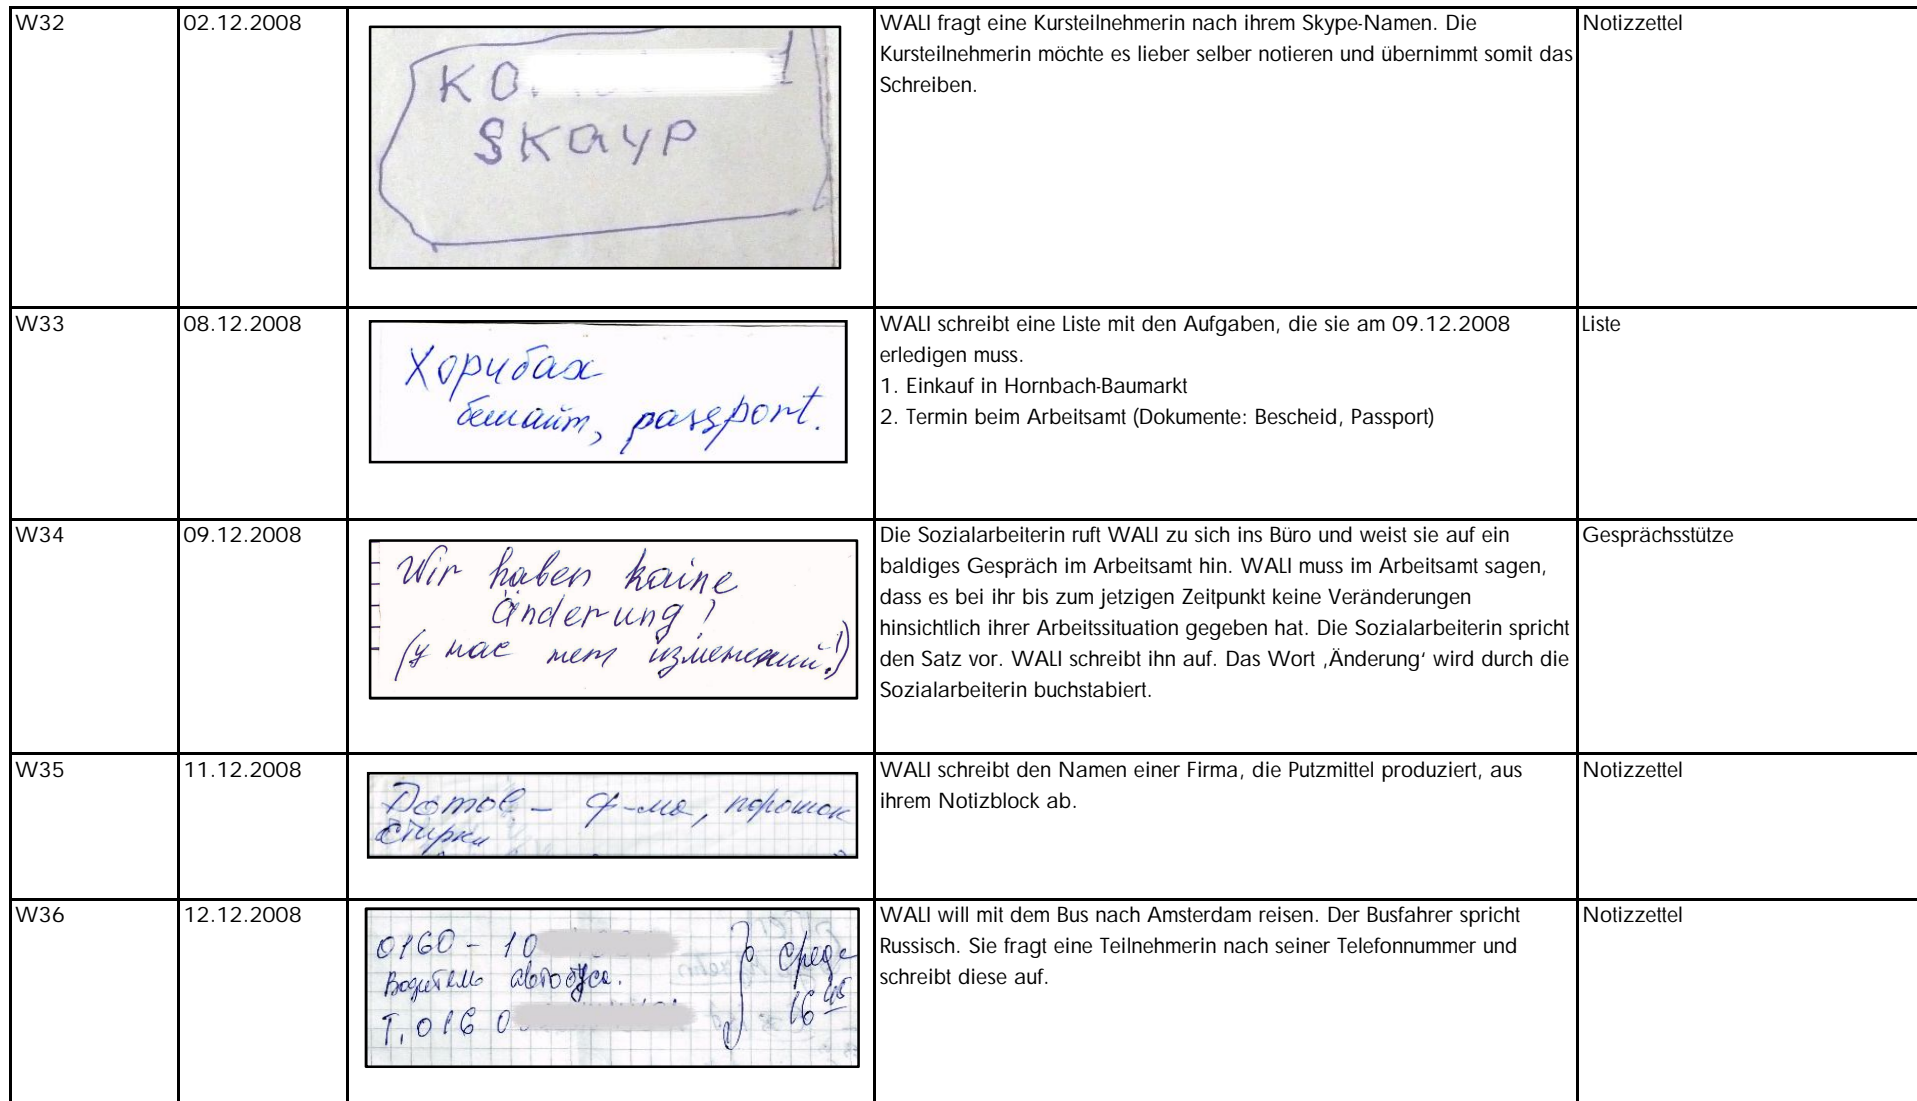 W32
02.12.2008
KO
1
SKAYP
WALI fragt eine Kursteilnehmerin nach ihrem Skype-Namen. Die
Kursteilnehmerin möchte es lieber selber notieren und übernimmt somit das
Schreiben.
Notizzettel
W33
08.12.2008
Хорнбах
бешайт, passport.
WALI schreibt eine Liste mit den Aufgaben, die sie am 09.12.2008
erledigen muss.
1. Einkauf in Hornbach-Baumarkt
2. Termin beim Arbeitsamt (Dokumente: Bescheid, Passport)
Liste
W34
09.12.2008
Wir haben kaine
Änderung!
(у нас нет изменений!)
Die Sozialarbeiterin ruft WALI zu sich ins Büro und weist sie auf ein
baldiges Gespräch im Arbeitsamt hin. WALI muss im Arbeitsamt sagen,
dass es bei ihr bis zum jetzigen Zeitpunkt keine Veränderungen
hinsichtlich ihrer Arbeitssituation gegeben hat. Die Sozialarbeiterin spricht
den Satz vor. WALI schreibt ihn auf. Das Wort ‚Änderung‘ wird durch die
Sozialarbeiterin buchstabiert.
Gesprächsstütze
W35
11.12.2008
– ф-ма, порошок
стирки
WALI schreibt den Namen einer Firma, die Putzmittel produziert, aus
ihrem Notizblock ab.
Notizzettel
W36
12.12.2008
0160 – 10
Водитель автобуса.
Т. 016 0
среда
16 45
WALI will mit dem Bus nach Amsterdam reisen. Der Busfahrer spricht
Russisch. Sie fragt eine Teilnehmerin nach seiner Telefonnummer und
schreibt diese auf.
Notizzettel